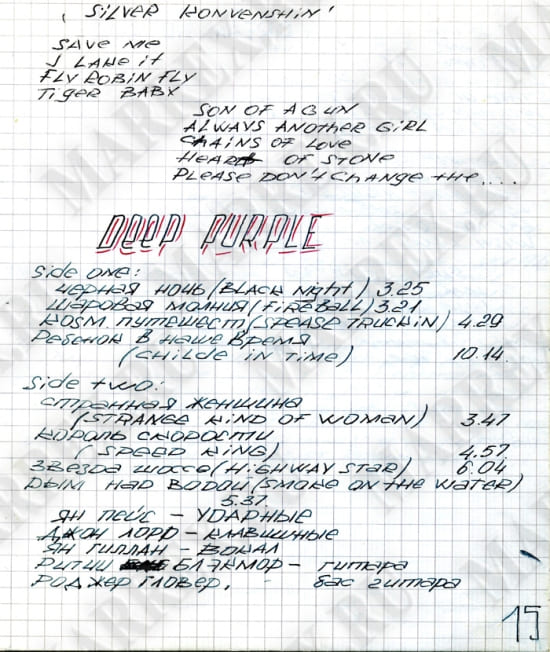 'SILVER KONVENSHIN'
SAVE ME
I LAKE IT
FLY ROBIN FLY
TIGER BABY
SON OF A GUN
ALWAYS ANOTHER GIRL
CHAINS OF LOVE
HEART OF STONE
PLEASE DON'T CHANGE THE....
DEEP PURPLE
Side one:
ЧЕРНАЯ НОЧЬ (BLACK NIGHT) 3.25
ШАРОВАЯ МОЛНИЯ (FIREBALL) 3.21
КОSM. ПУТЕШЕСТ (SPEASE TRUCKIN) 4.29
РЕБЕНОК В НАШЕ ВРЕМЯ
(CHILDE IN TIME) 10.14.
Side two:
СТРАННАЯ ЖЕНЩИНА
(STRANGE KIND OF WOMAN) 3.47
КОРОЛЬ СКОРОСТИ
(SPEED KING) 4.57.
ЗВЕЗДА ШОССЕ (HIGHWAY STAR) 6.04
ДЫМ НАД ВОДОЙ (SMOKE ON THE WATER)
5.37
ЯН ПЕЙС – УДАРНЫЕ
ДЖОН ЛОРД – КЛАВИШНЫЕ
ЯН ГИЛЛАН – ВОКАЛ
РИТЧИ БЛЭКМОР – ГИТАРА
РОДЖЕР ГЛОВЕР. – БАС ГИТАРА
15
MARKREX.RU